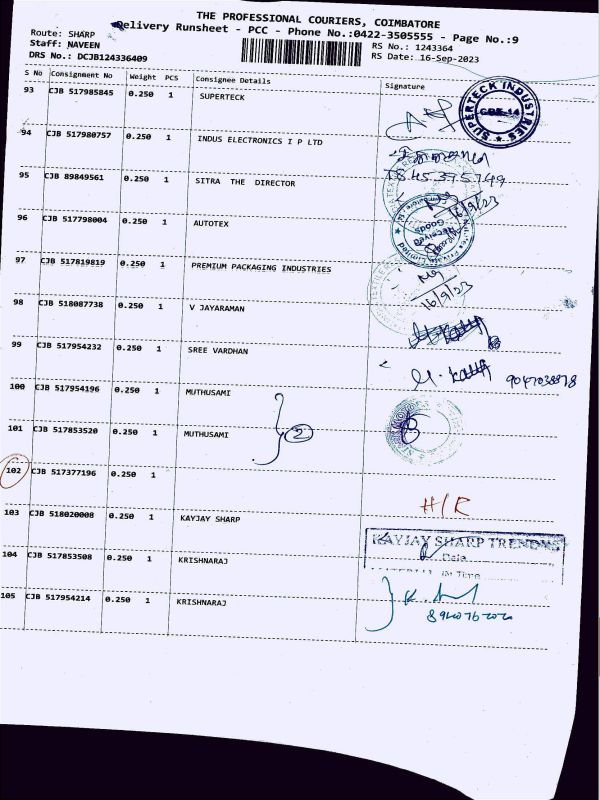 THE PROFESSIONAL COURIERS, COIMBATORE
Delivery Runsheet - PCC - Phone No.:0422-3505555 - Page No.:9
Route: SHARP
Staff: NAVEEN
DRS No.: DCJB124336409
RS No.: 1243364
RS Date: 16-Sep-2023
S No Consignment No Weight PCS Consignee Details Signature
93 CJB 517985845 0.250 1 SUPERTECK
SUPERTECK INDUSTRIES
CBE-14
94 CJB 517980757 0.250 1 INDUS ELECTRONICS I P LTD
95 CJB 89849561 0.250 1 SITRA THE DIRECTOR
16/9/23
96 CJB 517798004 0.250 1 AUTOTEX
Received
Goods
97 CJB 517819819 0.250 1 PREMIUM PACKAGING INDUSTRIES
16/9/23
98 CJB 518087738 0.250 1 V JAYARAMAN
99 CJB 517954232 0.250 1 SREE VARDHAN
100 CJB 517954196 0.250 1 MUTHUSAMI
101 CJB 517853520 0.250 1 MUTHUSAMI
2
102 CJB 517377196 0.250 1
H/R
103 CJB 518020008 0.250 1 KAYJAY SHARP
KAYJAY SHARP TRENDYS
Date
In Time
104 CJB 517853508 0.250 1 KRISHNARAJ
105 CJB 517954214 0.250 1 KRISHNARAJ